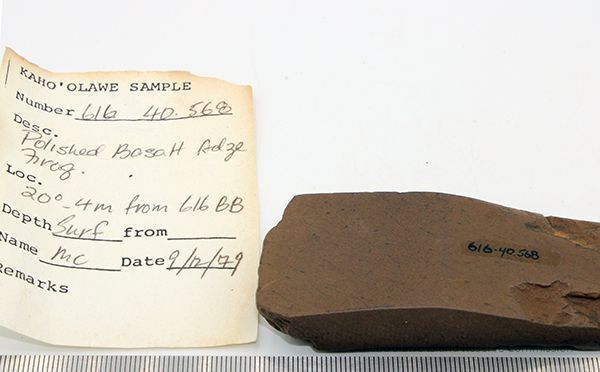 KAHO'OLAWE SAMPLE
Number 616 40.568
Desc.
Polished Basalt Adze
Frag.
Loc.
20° - 4m from 616 BB
Depth Surf from
Name MC Date 9/12/79
Remarks
616-40.568